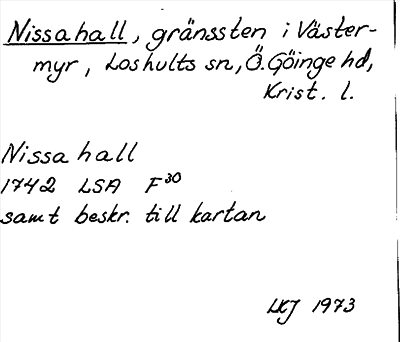 Nissahall, gränssten i Väster-
myr, Loshults sn, Ö. Göinge hd,
Krist. l.
Nissahall
1742 LSA F30
samt beskr. till kartan
LKJ 1973